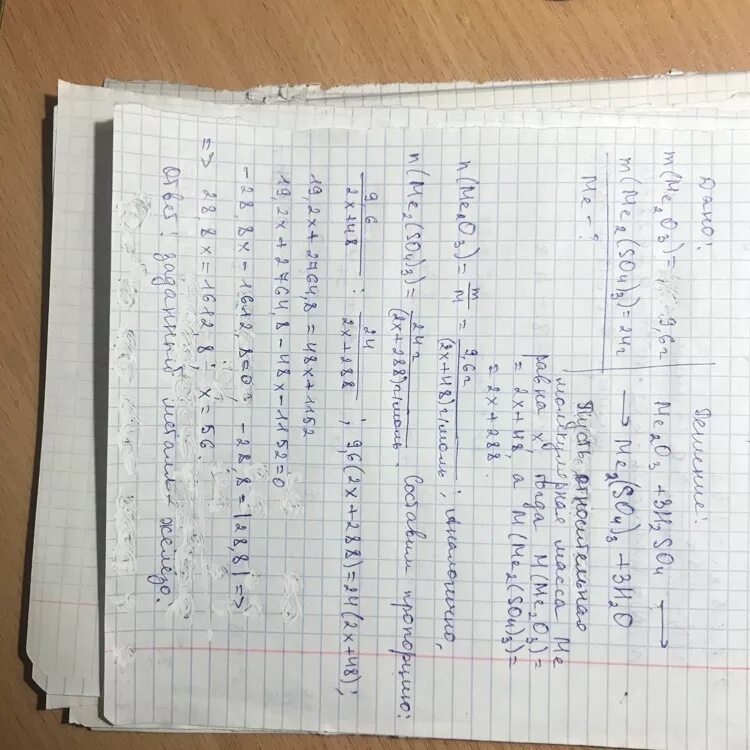 Дано: Решение:
m(Me2O3)= 9,6г Me2O3 + 3H2SO4 →
m(Me2(SO4)3)=24г → Me2(SO4)3 + 3H2O
Me - ? Пусть относительная
молекулярная масса Me
равна x, тогда M(Me2O3)=
= 2x+48, а M(Me2(SO4)3)=
= 2x+288.
n(Me2O3) = m/M = 9,6г/(2x+48)г/моль; Аналогично,
n(Me2(SO4)3) = 24г/(2x+288)г/моль. Составим пропорцию:
9,6/2x+48 : 24/2x+288; 9,6(2x+288)=24(2x+48);
19,2x+2764,8=48x+1152
19,2x+2764,8-48x-1152=0
-28,8x-1612,8=0; -28,8=|28,8| =>
=> 28,8x=1612,8; x=56.
Ответ: заданный металл - железо.